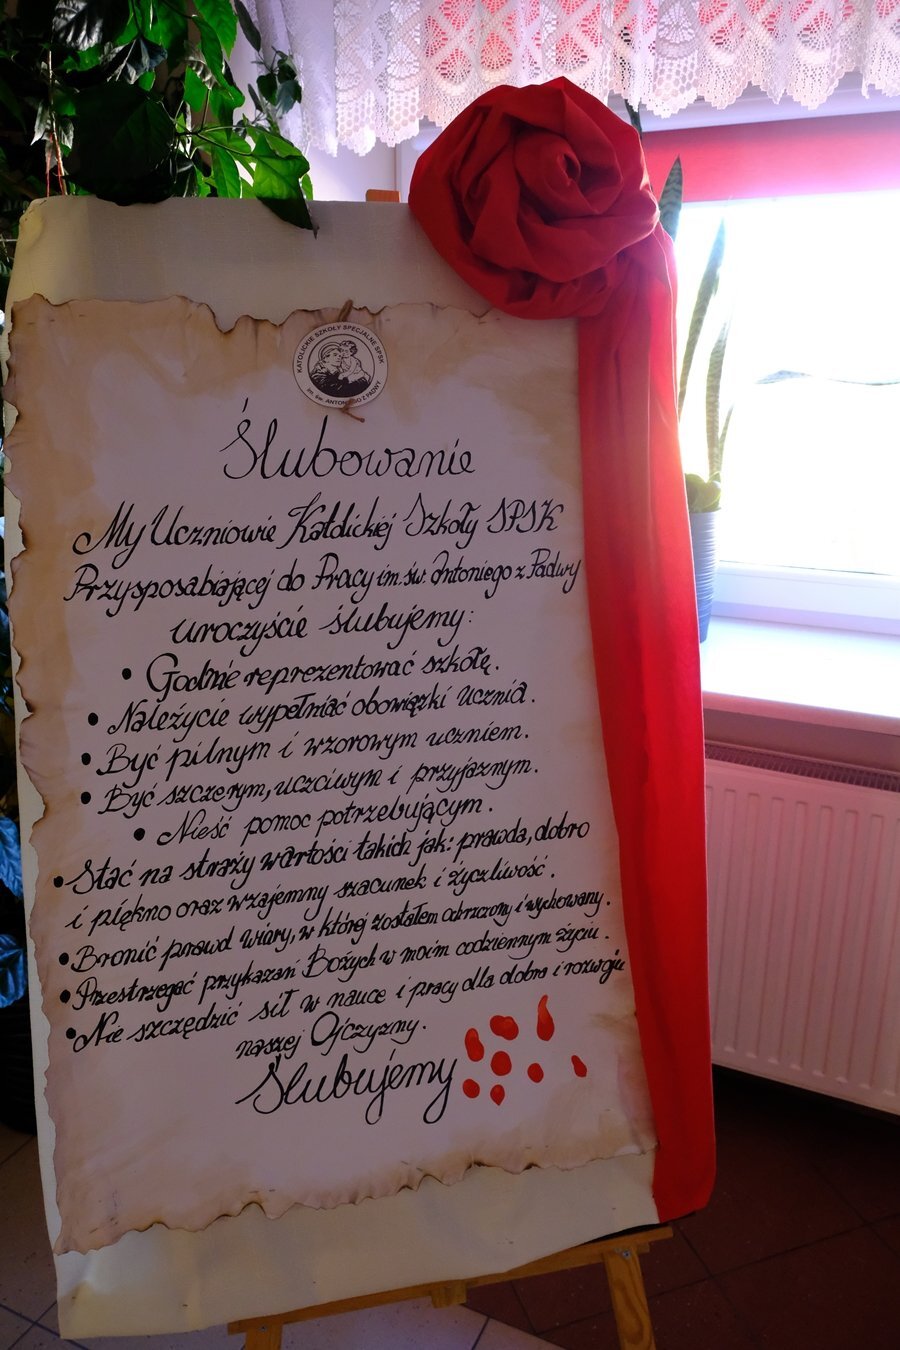 KATOLICKIE SZKOŁY SPECJALNE SPSK
im. św. ANTONIEGO Z PADWY
Ślubowanie
My Uczniowie Katolickiej Szkoły SPSK
Przysposabiającej do Pracy im. św. Antoniego z Padwy
uroczyście ślubujemy:
• Godnie reprezentować szkołę.
• Należycie wypełniać obowiązki ucznia.
• Być pilnym i wzorowym uczniem.
• Być szczerym, uczciwym i przyjaznym.
• Nieść pomoc potrzebującym.
• Stać na straży wartości takich jak: prawda, dobro
i piękno oraz wzajemny szacunek i życzliwość.
• Bronić prawd wiary, w której zostałem ochrzczony i wychowany.
• Przestrzegać przykazań Bożych w moim codziennym życiu.
• Nie szczędzić sił w nauce i pracy dla dobra i rozwoju
naszej Ojczyzny.
Ślubujemy